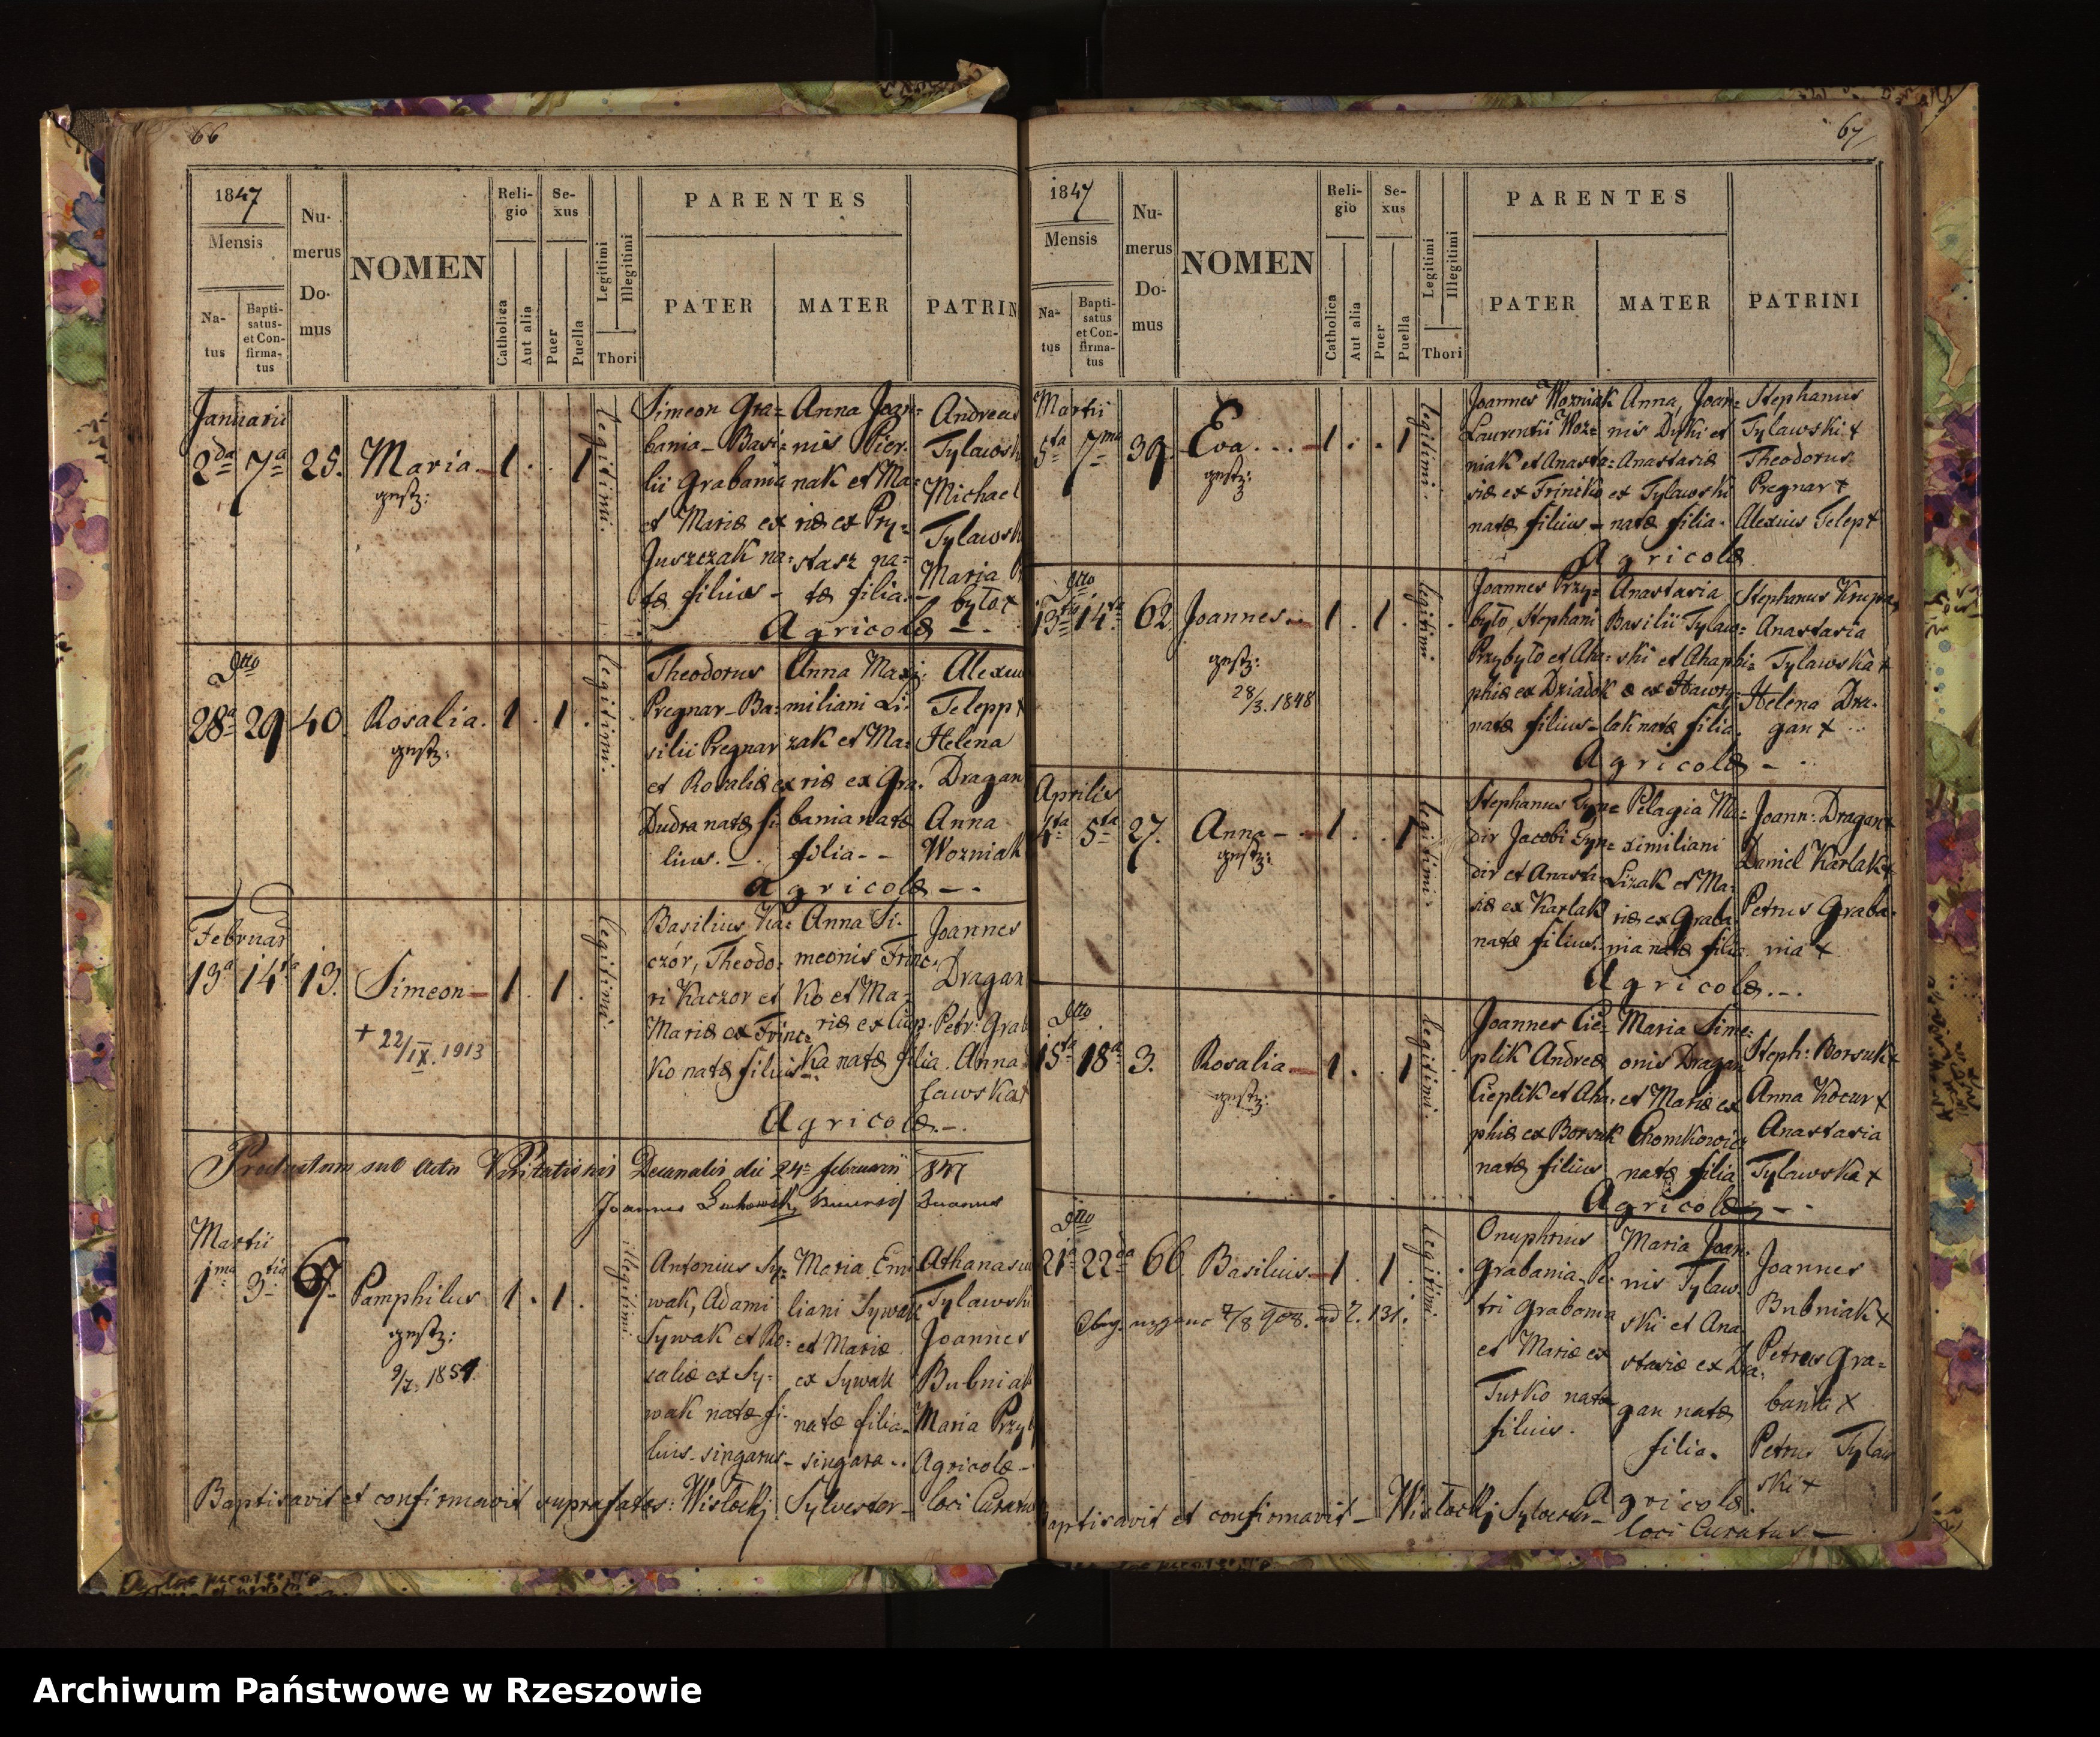 66
1847
Mensis
Na-
tus
Bapti-
satus-
et Con-
firma-
tus
Nu-
merus
Do-
mus
NOMEN
Reli-
gio
Catholica
Aut alia
Se-
xus
Puer
Puella
Legitimi
Illegitimi
Thori
PARENTES
PATER
MATER
PATRIN
Januarii
2da 7a 25. Maria 1 1
legitimi.
Simeon Gra=
bania - Basi=
lii Grabania
et Mariæ ex
Juszczak na=
tæ filius -
Anna Joan=
nis Pier.
nak et Ma=
riæ ex Pry=
stasz na=
tæ filia.
Andreas
Tylawsk
Michael
Tylawsk
Maria
byto +
Agricolæ
Dtto
28a 29 40. Rosalia. 1 1
legitimi.
Theodorus
Pregnar - Ba=
silii Pregnar
et Rosaliæ ex
Dudra natæ fi
lius.
Anna Maxi:
miliani Li.
zak et Ma=
riæ ex Gra.
bania natæ
filia - -
Alexius
Telepp +
Helena
Dragan
Anna
Wozniak
Agricolæ
Februar
13a 14ta 13. Simeon 1 1
+ 22/IX. 1913
legitimi.
Basilius Ka=
czór, Theodo=
ri Kaczor et
Mariæ ex Trinc=
ko natæ filius
Anna Si.
meonis Trinc,
ko et Ma=
riæ ex Ciup.
ka natæ filia.
Joannes
Dragan
Petr: Grab
Anna
lawska +
Agricolæ
sub actu Visitationis Decanalis die 24a februarii 847
Joannes
Martii
1ma 3tia 67. Pamphilus 1 1
1854
illegitimi.
Antonius Sy=
wak, Adami
Sywak et Ro=
saliæ ex Sy=
wak natæ fi.
lius - singarus -
Maria Emi
liani Sywak
et Mariæ
ex Sywak
natæ filia -
singara -
Athanasiu
Tylawski
Joannes
Bubniak
Maria Przy
Agricolæ -
Baptisavit et confirmavit suprafatos: Wisłocki Sylvester - loci Curatus
67
1847
Mensis
Na-
tus
Bapti-
satus
et Con-
firma-
tus
Nu-
merus
Do-
mus
NOMEN
Reli-
gio
Catholica
Aut alia
Se-
xus
Puer
Puella
Legitimi
Illegitimi
Thori
PARENTES
PATER
MATER
PATRINI
Martii
5ta 7ma 39. Eva 1 1
legitimi.
Joannes Wozniak
Laurentii Woz=
niak et Anasta=
siæ ex Trincko
natæ filius -
Anna, Joan=
nis Dziki et
Anastasiæ
ex Tylawski
natæ filia.
Stephanus
Tylawski +
Theodorus
Pregnar +
Alexius Telep +
Agricolæ
Dtto
13tia 14ta 62. Joannes 1 1
28/3. 1848
legitimi
Joannes Przy=
byto, Stephani
Przybyto et Aha=
phiæ ex Dziadik
natæ filius -
Anastasia
Basilii Tylaw=
ski et Ahaphi=
æ ex Hawry=
lak natæ filia.
Stephanus Krupa
Anastasia
Tylawska +
Helena Dra.
gan +
Agricolæ -
Aprilis
4ta 5ta 27. Anna 1 1
legitimi.
Stephanus Tyn=
dir Jacobi Tyn=
dir et Anasta=
siæ ex Karlak
natæ filius.
Pelagia Ma=
ximiliani
Lizak et Ma=
riæ ex Graba
nia natæ filia
Joann: Dragan +
Daniel Karlak +
Petrus Graba.
nia +
Agricolæ. - .
Dtto
15ta 18a 3. Rosalia 1 1
legitimi.
Joannes Cie=
plik Andreæ
Cieplik et Aha.
phiæ ex Borsuk
natæ filius
Maria Sime=
onis Dragan
et Mariæ ex
Chomkowicz
natæ filia
Steph: Borsuk +
Anna Kocur +
Anastasia
Tylawska +
Agricolæ - -
Dtto
21a 22da 66. Basilius 1 1
legitimi.
Onuphrius
Grabania - Pe.
tri Grabania
et Mariæ ex
Turko natæ
filius.
Maria Joan.
nis Tylaw.
ski et Ana.
stasiæ ex Dra.
gan natæ
filia.
Joannes
Bubniak +
Petrus Gra=
bania +
Petrus Tylaw
ski +
Agricolæ.
Baptisavit et confirmavit - Wisłocki Sylvester -
loci Curatus -
Archiwum Państwowe w Rzeszowie